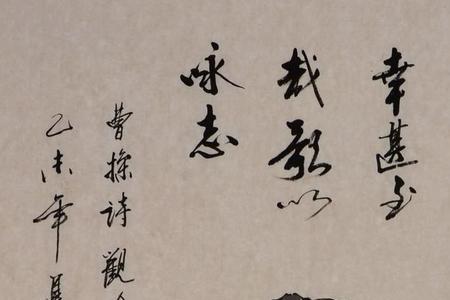 幸甚至
哉歌以
咏志
曹操詩觀
乙未年